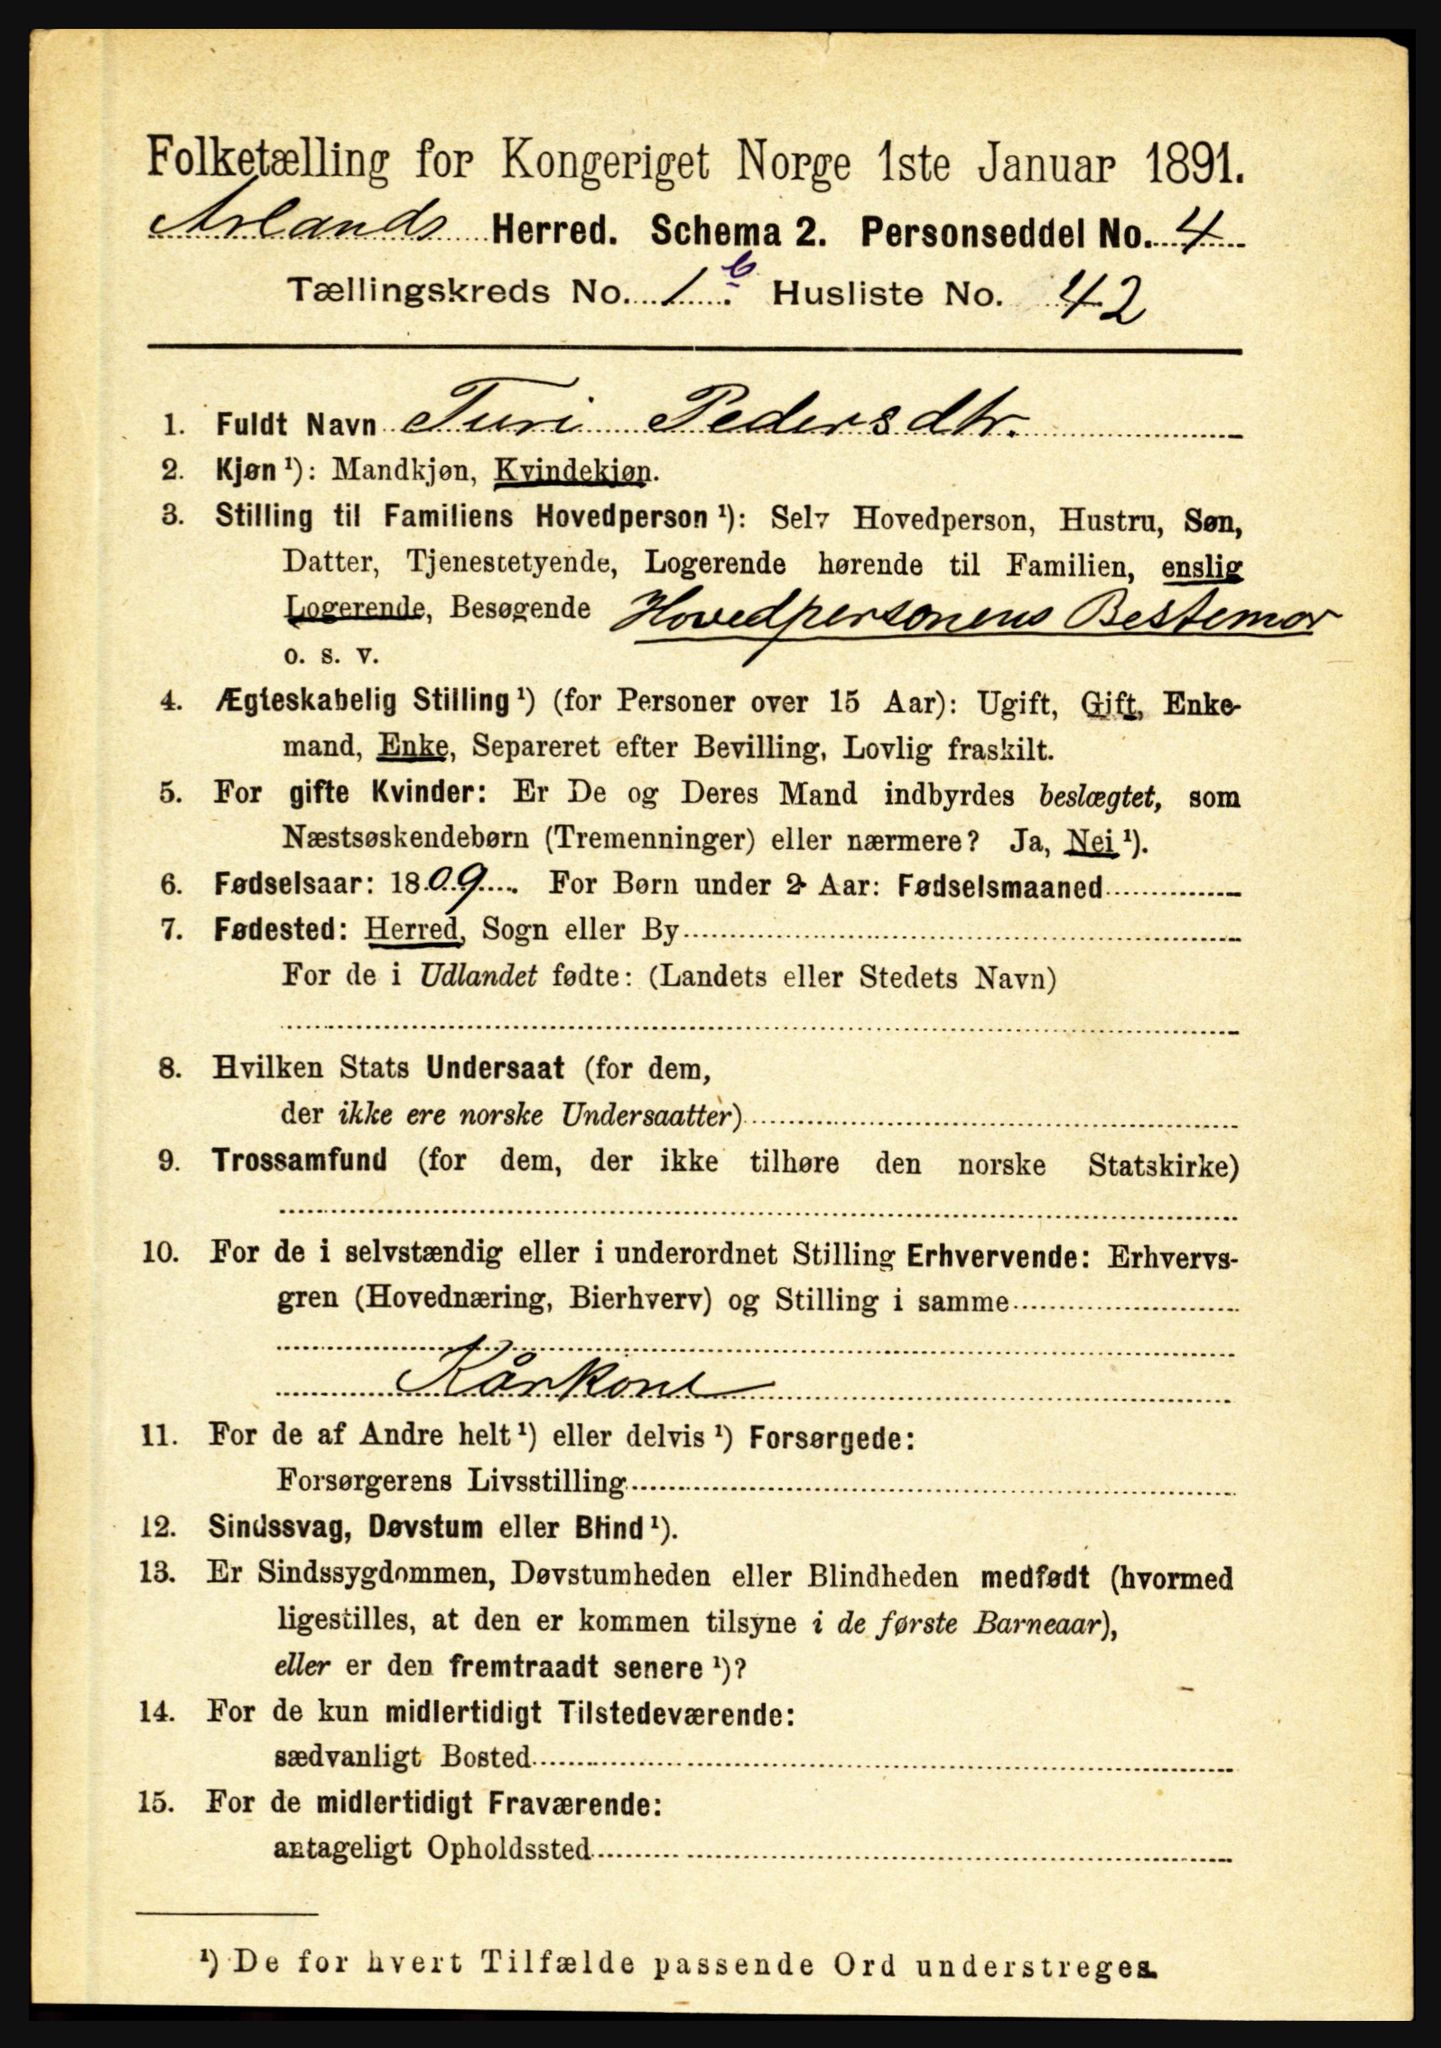 Folketælling for Kongeriget Norge 1ste Januar 1891.
Årlands Herred. Schema 2. Personseddel No. 4
Tællingskreds No. 1.b Husliste No. 42
1. Fuldt Navn Turi Pedersdtr.
2. Kjøn¹): Mandkjøn, Kvindekjøn.
3. Stilling til Familiens Hovedperson¹): Selv Hovedperson, Hustru, Søn,
Datter, Tjenestetyende, Logerende hørende til Familien, enslig
Logerende, Besøgende Hovedpersonens Bestemor
o. s. v.
4. Ægteskabelig Stilling¹) (for Personer over 15 Aar): Ugift, Gift, Enke-
mand, Enke, Separeret efter Bevilling, Lovlig fraskilt.
5. For gifte Kvinder: Er De og Deres Mand indbyrdes beslægtet, som
Næstsøskendebørn (Tremenninger) eller nærmere? Ja, Nei¹).
6. Fødselsaar: 1809. For Børn under 2 Aar: Fødselsmaaned
7. Fødested: Herred, Sogn eller By
For de i Udlandet fødte: (Landets eller Stedets Navn)
8. Hvilken Stats Undersaat (for dem,
der ikke ere norske Undersaatter)
9. Trossamfund (for dem, der ikke tilhøre den norske Statskirke)
10. For de i selvstændig eller i underordnet Stilling Erhvervende: Erhvervs-
gren (Hovednæring, Bierhverv) og Stilling i samme
Kårkone
11. For de af Andre helt¹) eller delvis¹) Forsørgede:
Forsørgerens Livsstilling
12. Sindssvag, Døvstum eller Blind¹).
13. Er Sindssygdommen, Døvstumheden eller Blindheden medfødt (hvormed
ligestilles, at den er kommen tilsyne i de første Barneaar),
eller er den fremtraadt senere¹)?
14. For de kun midlertidigt Tilstedeværende:
sædvanligt Bosted
15. For de midlertidigt Fraværende:
antageligt Opholdssted
¹) De for hvert Tilfælde passende Ord understreges.